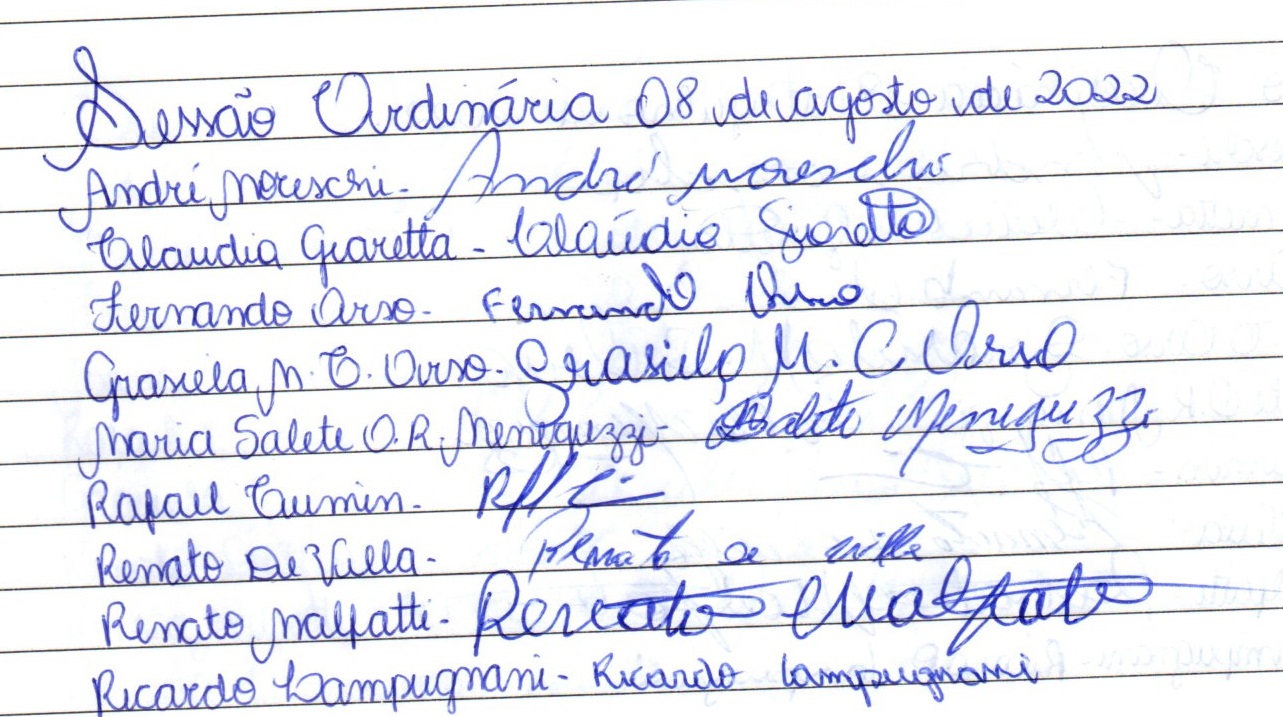 Sessão Ordinária 08 de agosto de 2022
André Moreschi - André Moreschi
Claudia Giaretta - Claúdia Giaretta
Fernando Orso - Fernando Orso
Grasiela M. C. Orso - Grasiela M. C Orso
Maria Salete O. R. Meneguzzi - Salete Meneguzzi
Rafael Cumin -
Renato De Villa - Renato De Villa
Renato Malfatti - Renato Malfatti
Ricardo Lampugnani - Ricardo Lampugnani